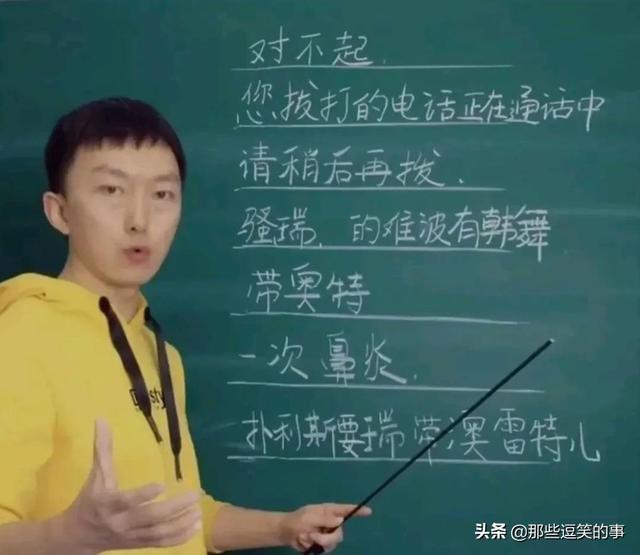 对不起.
您拔打的电话正在通话中
请稍后再拨.
骚瑞.的难波有韩舞
带奥特
一次鼻炎.
扑利斯要瑞带澳雷特儿
头条 @那些逗笑的事